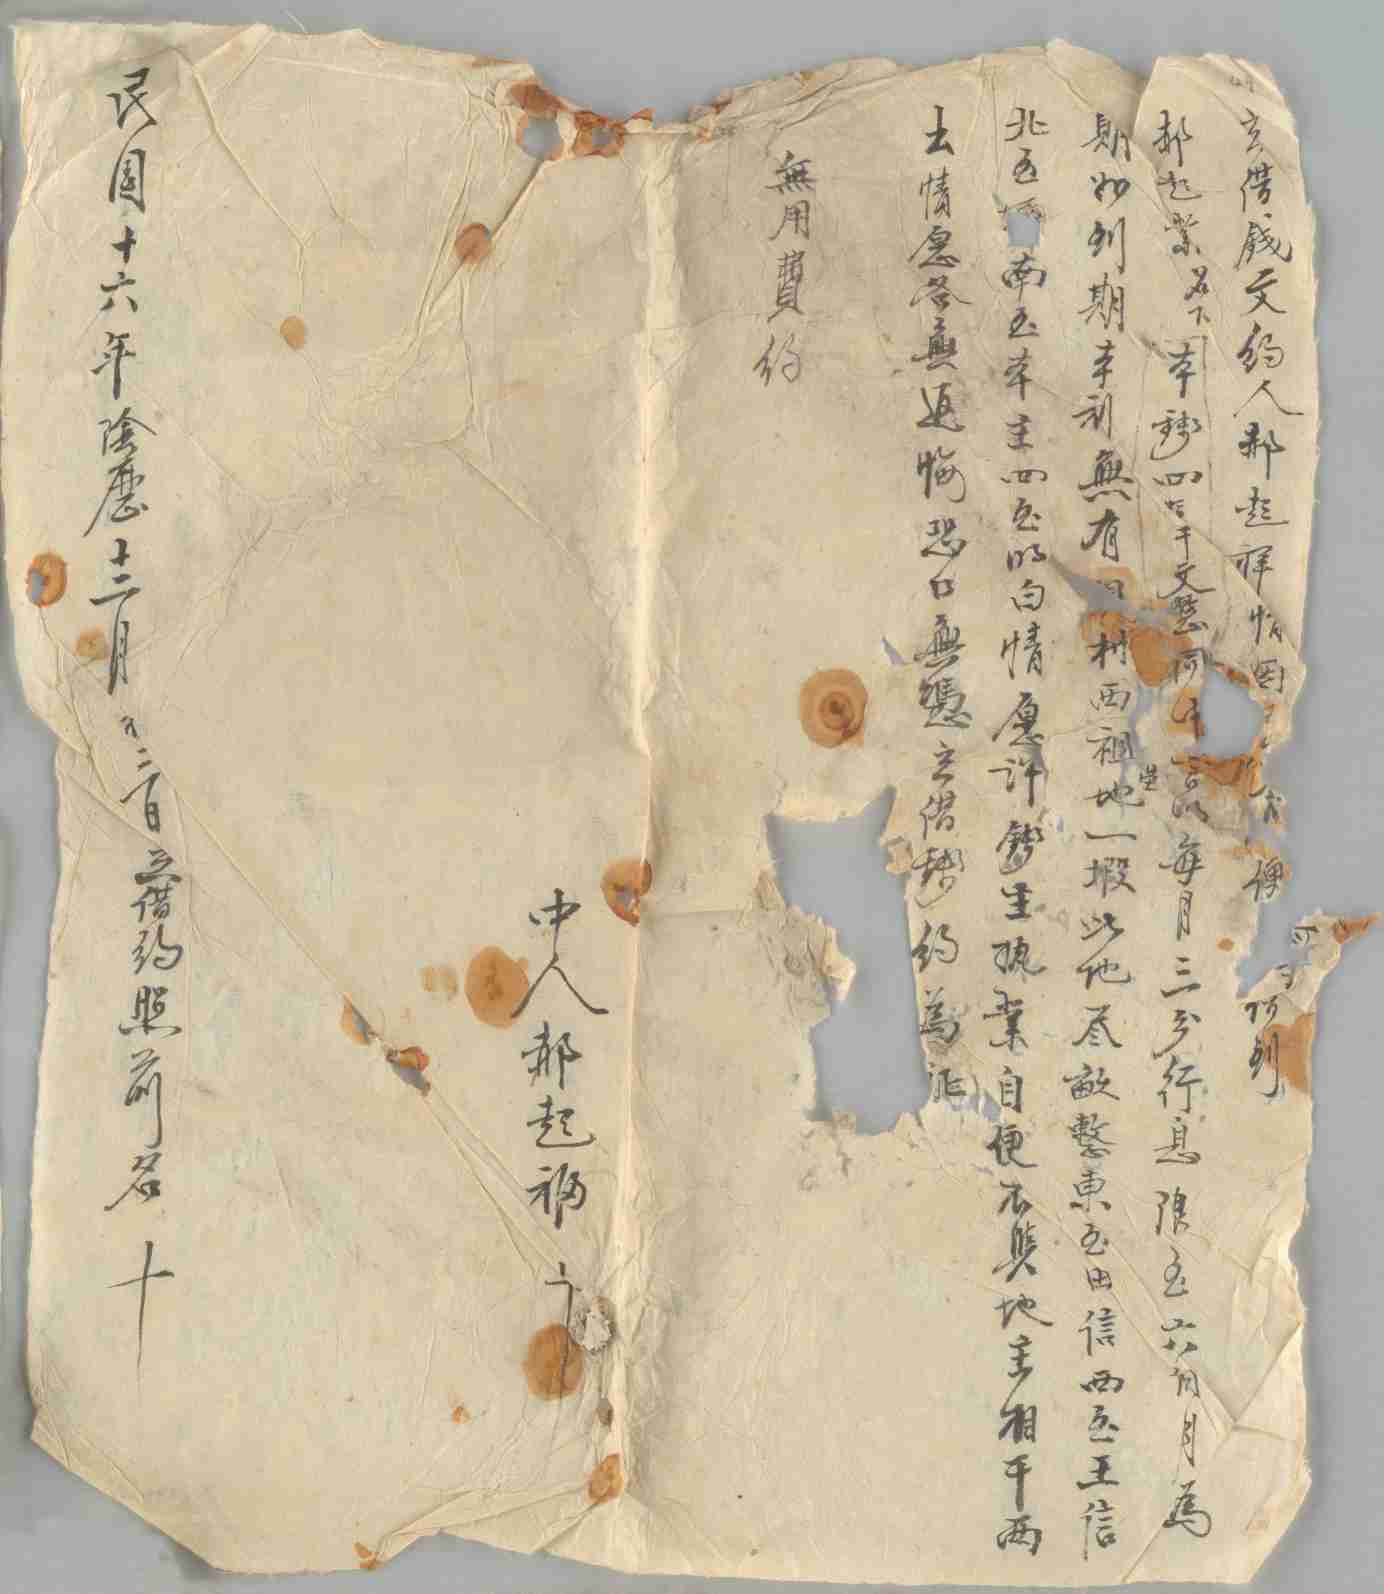 立借錢文約人郝起祥情因便到
郝起業名下本錢四千文整同中言明每月三分行息限至六個月為
期如到期本利無有村西祖地一塅此地尽畝繫東至田信西至王信
北至南至本主四至明白情愿許錢主執業自便不與地主相干兩
出情愿各無返悔恐口無憑立借錢約為証
無用費約
中人郝起福十
民國十六年陰歷十二月廿二日立借約照前名十